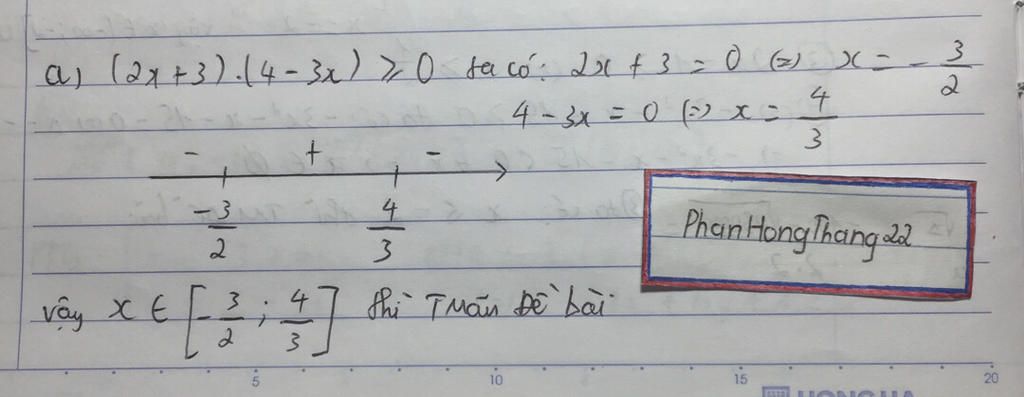 a) (2x+3).(4-3x) ⩾ 0 ta có: 2x + 3 = 0 (=) x = - 3/2
4 - 3x = 0 (=) x = 4/3
- + -
-3/2 4/3
PhanHongThang22
vậy x ∈ [-3/2 ; 4/3] thì TMãn Đề bài
5 10 15 20
HONG HA